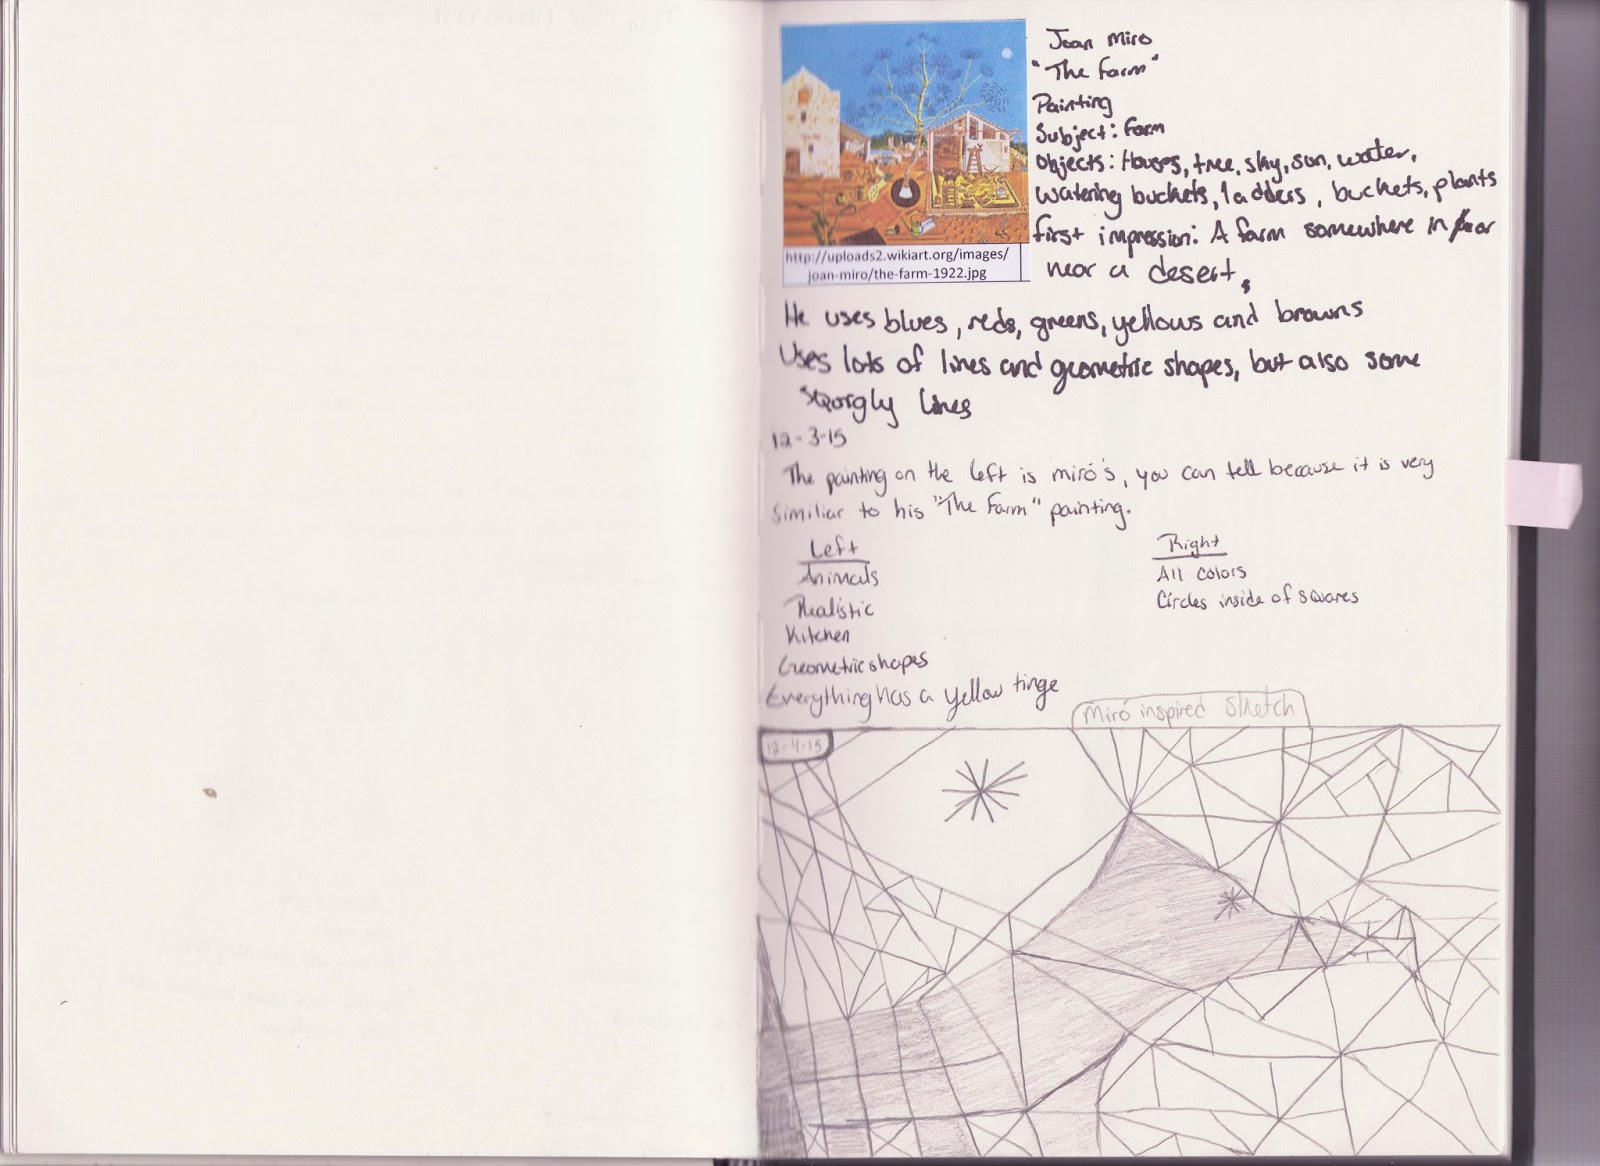 Joan Miro
"The Farm"
Painting
Subject: Farm
Objects: Houses, tree, sky, sun, water,
Watering buckets, ladders, buckets, plants
first impression: A farm somewhere in or
near a desert,
http://uploads2.wikiart.org/images/
joan-miro/the-farm-1922.jpg
He uses blues, reds, greens, yellows and browns
Uses lots of lines and geometric shapes, but also some
lines
12-3-15
The painting on the left is miró's, you can tell because it is very
similiar to his "The Farm" painting.
Left
Animals
Realistic
Kitchen
Geometric shapes
Everything has a yellow tinge
Right
All colors
Circles inside of squares
Miró inspired Sketch
12-4-15